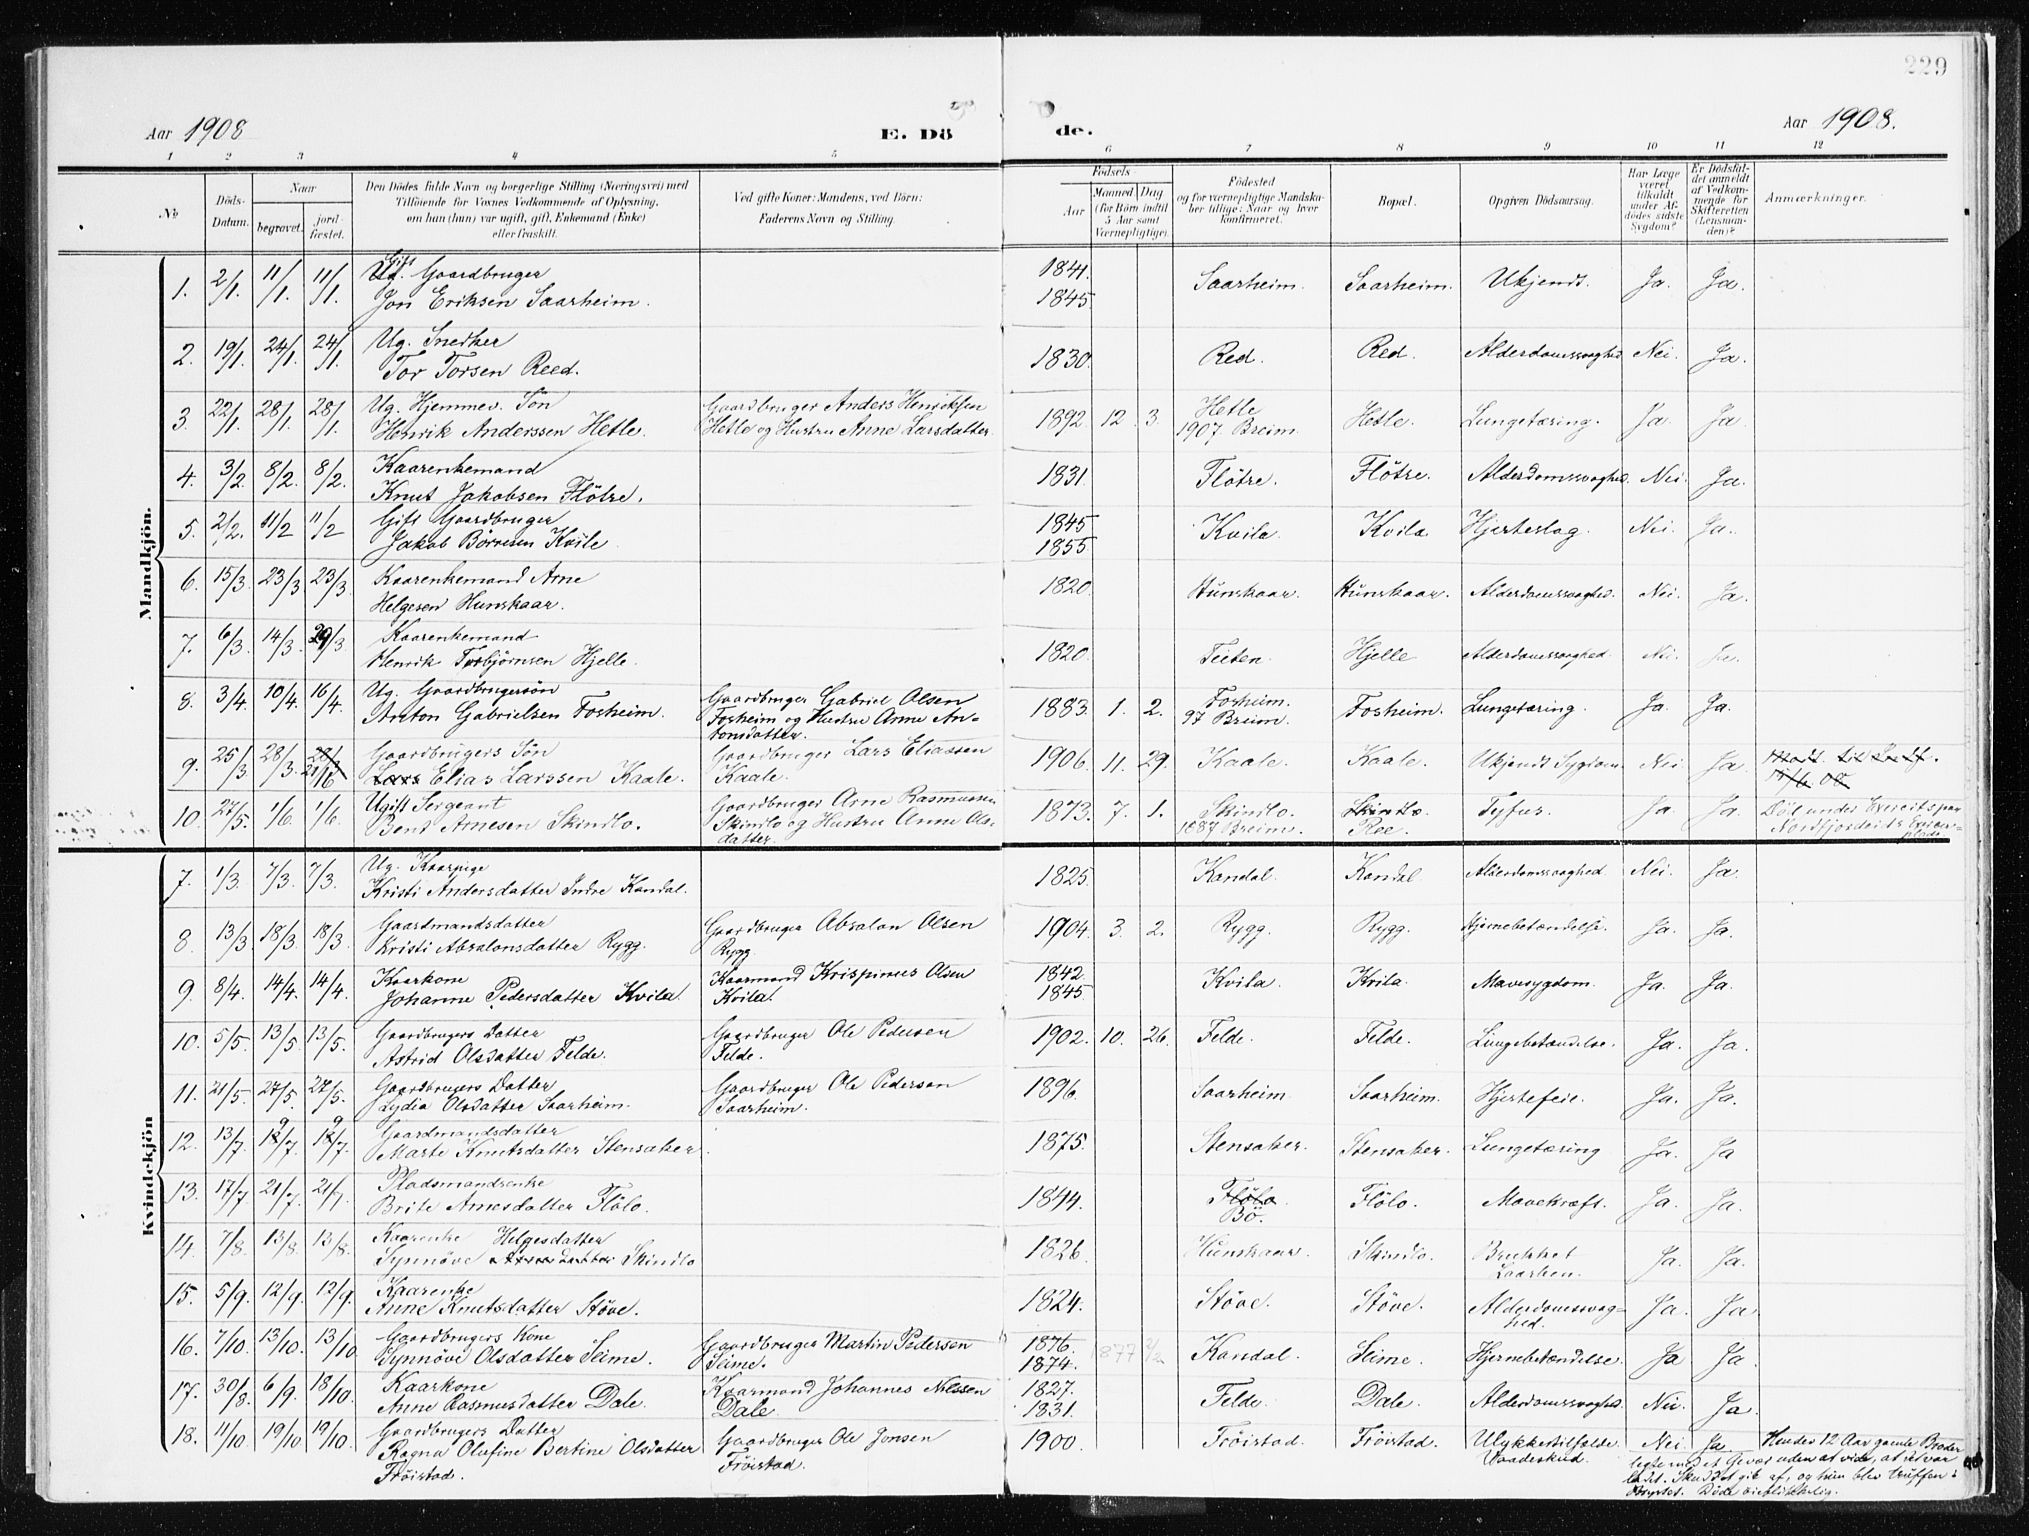 229
Aar 1908 E. Dö de. Aar 1908.
1 2 3 4 5 6 7 8 9 10 11 12
№ Döds-Datum. Naar begravet. jordfæstet. Den Dödes fulde Navn og borgerlige Stilling (Næringsvei) med Tilföiende for Voxnes Vedkommende af Oplysning, om han (hun) var ugift, gift, Enkemand (Enke) eller fraskilt. Ved gifte Koner: Mandens, ved Börn: Faderens Navn og Stilling. Födsels Aar Maaned Dag (for Börn indtil 5 Aar samt Værnepligtige). Födested og for værnepligtige Mandskaber tillige: Naar og hvor konfirmeret. Bopæl. Opgiven Dödsaarsag. Har Læge været tilkaldt under Afdödes sidste Sygdom? Er Dödsfaldet anmeldt af Vedkommende for Skifteretten (Lensmanden)? Anmærkninger.
Mandkjön.
1. 2/1 11/1. 11/1. Gift Gaardbruger Jon Eriksen Saarheim. 1841. 1845 Saarheim. Saarheim. Ukjendt. Ja. Ja.
2. 19/1. 24/1. 24/1. Ug. Snedker Tor Torsen Reed. 1830. Red. Red. Alderdomssvaghed Nei. Ja.
3. 22/1. 28/1. 28/1. Ug. Hjemmev. Sön Henrik Anderssen Hetle. Gaardbruger Anders Henriksen Hetle og Hustru Anne Larsdatter. 1892 12 3. Hetle 1907. Breim. Hetle. Lungetæring. Ja Ja.
4. 3/2. 8/2. 8/2. Kaarenkemand Knut Jakobsen Flötre. 1831. Flötre. Flötre. Alderdomssvaghed. Nei. Ja.
5. 2/2. 11/2 11/2 Gift Gaardbruger Jakob Börresen Kvile 1845 1855. Kvila. Kvila Hjerteslag. Nei. Ja.
6. 15/3. 23/3 23/3 Kaarenkemand Arne Helgesen Hunskaar. 1820. Hunskaar. Hunskaar. Alderdomssvaghed. Nei. Ja.
7. 6/3. 14/3. 29/3 Kaarenkemand Henrik Torbjörnsen Hjelle. 1820. Teiten. Hjelle Alderdomssvaghed. Nei. Ja.
8. 3/4. 10/4. 16/4. Ug. Gaardbrugersön Anton Gabrielsen Fosheim. Gaardbruger Gabriel Olsen Fosheim og Hustru Anne Antonsdatter. 1883. 1. 2. Fosheim. 97 Breim. Fosheim. Lungetæring. Ja. Ja.
9. 25/3. 28/3. 28/3 21/6 Gaardbrugers Sön Lars Elias Larssen Kaale. Gaardbruger Lars Eliassen Kaale. 1906. 11. 29. Kaale. Kaale. Ukjendt Sygdom. Nei Ja
10. 27/5. 1/6. 1/6. Ugift Sergeant Bent Arnesen Skindlo. Gaardbruger Arne Rasmussen Skindlo og Hustru Anne Olsdatter. 1873. 7. 1. Skindlo. 1887 Breim. Skindlo. Ree. Tyfus. Ja. Ja. Död under Exercits paa Nordfjordeids Exercerplads.
Kvindekjön
7. 1/3. 7/3. 7/3. Ug. Kaarpige Kristi Andersdatter Indre Kandal. 1825. Kandal. Kandal. Alderdomssvaghed. Nei. Ja.
8. 13/3. 18/3. 18/3 Gaardmandsdatter Kristi Absalonsdatter Rygg. Gaardbruger Absalon Olsen Rygg. 1904. 3. 2. Rygg. Rygg. Hjernebetændelse. Ja. Ja.
9. 8/4. 14/4. 14/4. Kaarkone Johanne Pedersdatter Kvila. Kaarmand Krispinus Olsen Kvila. 1842. 1845. Kvila. Kvila. Mavesygdom. Ja. Ja.
10. 5/5. 13/5. 13/5. Gaardbrugers Datter Astrid Olsdatter Felde. Gaardbruger Ole Pedersen Felde. 1902. 10. 26. Felde. Felde. Lungebetændelse. Ja. Ja.
11. 21/5. 27/5. 27/5. Gaardbrugers Datter Lydia Olsdatter Saarheim. Gaardbruger Ole Pederson Saarheim. 1896. Saarheim. Saarheim. Hjertefeil. Ja. Ja.
12. 13/7. 19/7. 19/7. Gaardmandsdatter Marte Knutsdatter Stensaker. 1875. Stensaker. Stensaker. Lungetæring Ja. Ja
13. 17/7 21/7. 21/7. Pladsmandsenke Brite Arnesdatter Flölo. 1844. Flölo Bö. Flölo. Mavekræft. Ja. Ja.
14. 7/8. 13/8. 13/8. Kaarenke Helgesdatter Synnöve Skindlo 1826. Hunskaar. Skindlo. Brukket Laarben. Ja. Ja.
15. 5/9. 12/9. 12/9. Kaarenke Anne Knutsdatter Stöve. 1824. Stöve. Stöve. Alderdomssvaghed. Ja. Ja
16. 7/10. 13/10. 13/10 Gaardbrugers Kone Synnöve Olsdatter Seime. Gaardbruger Martin Pedersen Seime. 1876. 1874. 1877 2/2 Kandal. Seime. Hjernebetændelse. Ja Ja
17. 30/8. 6/9. 18/10. Kaarkone Anne Rasmusdatter Dale. Kaarmand Johannes Nilssen Dale. 1827. 1831. Felde. Dale. Alderdomssvaghed. Nei. Ja.
18. 11/10 19/10 19/10. Gaardbrugers Datter Ragna Olufine Bertine Olsdatter Fröistad. Gaardbruger Ole Jonsen Fröistad. 1900. Fröistad. Fröistad. Ulykkestilfælde. Vaadeskud. Nei. Ja Hendes 12 Aar gamle Broder legte med et Gevær uden at vide, at det var ladt. Skuddet gik af, og hun blev truffen i Brystet. Döde öieblikkelig.